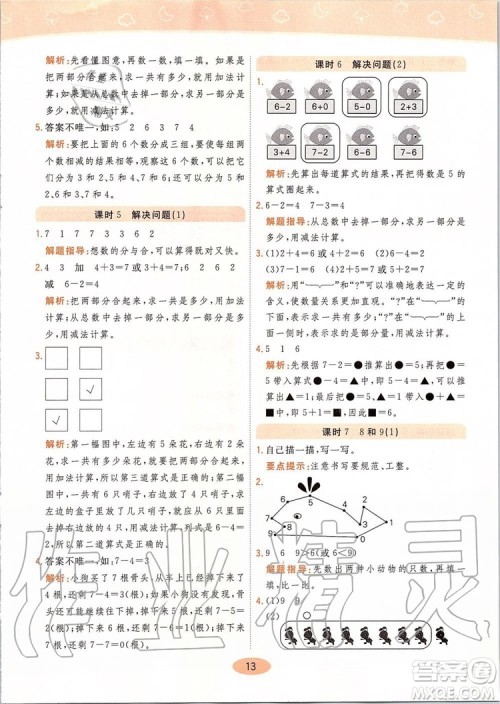 解析：先看懂图意，再数一数，填一填。如果是
把两部分合起来，求一共有多少，就用加法计
算；如果是从总数中去掉一部分，求另一部分是
多少，就用减法计算。
5. 答案不唯一，如：5 2 6 3 7 4
解析：要把上面的6个数分成三组，要使每组
两个数相减的结果相同，观察这6个数，可以分
为5和2、6和3、7和4，或分为3和2、5和4、
7和6。
课时5 解决问题(1)
1. 7 1 7 7 3 7 2 6
解题指导：想数的分与合，可以填得既对又快。
2. 4 3 加 4+3=7(或3+4=7) 6 2
减 6-2=4
解析：把两部分合起来，求一共是多少，用加
法计算；从总数中去掉一部分，求另一部分是
多少，用减法计算。
3.
√
√
解析：第一幅图中，左边有5朵花，右边有2朵
花，求一共有多少朵花，就是把左边的5朵花
和右边的2朵花合起来，用加法计算，列式为
5+2=7，所以第三道算式是正确的；第二幅
图中，大括号下面表示一共6个哨子，右边有
4个哨子，求左边的盒里有几个哨子，就是从总
数6中去掉右边的4个哨子，列式为6-4=
2，所以第二道算式是正确的。
4. 答案不唯一，如：7-4=3
解析：小狗买了7根骨头，已经吃了一部分，
骨头还可能剩下1根，列式为7-1=6；可能
剩下2根，列式为7-2=5；可能剩下3根，列
式为7-3=4；可能剩下4根，列式为7-4=
3；可能剩下5根，列式为7-5=2；可能剩下
6根，列式为7-6=1。
课时6 解决问题(2)
1.
6-2 6+0 5-0 2+3
3+4 7-2 6-6 7-6
解析：先算出每道算式的结果，再把得数是5的
算式圈起来。
2. 6-2=4 7-3=4
解题指导：从总数中去掉一部分，求另一部分，
用减法计算。
3. (1)2+4=6(或4+2=6) (2)6-1=5
(3)7-2=5 (4)7-4=3
解析：用数学语言可以准确地表达一定的
含义，使数量关系更直观。“?”在“﹏”的
下面，表示求一共有多少；“?”在“﹏”的上
面一侧时，表示求的是部分量，用减法计算。
4. 5 1 6
解析：先根据7-2=●推算出●=5，再把●=
5带入算式●-▲=4中，推算出5-▲=4，
▲=1。最后把●=5、▲=1带入●+▲=■
中，即5+1=■，■=6。
课时7 8和9(1)
1. 自己描一描，写一写。
要点提示：注意书写要规范、工整。
2.
0 1 2 3 4 5 6 7 8 9
3. 9 6 9>6(或6<9)
解题指导：先数出两种小动物的只数，再比一
比。
4. (1)9 8
(2)
13
作业精灵
答案圈